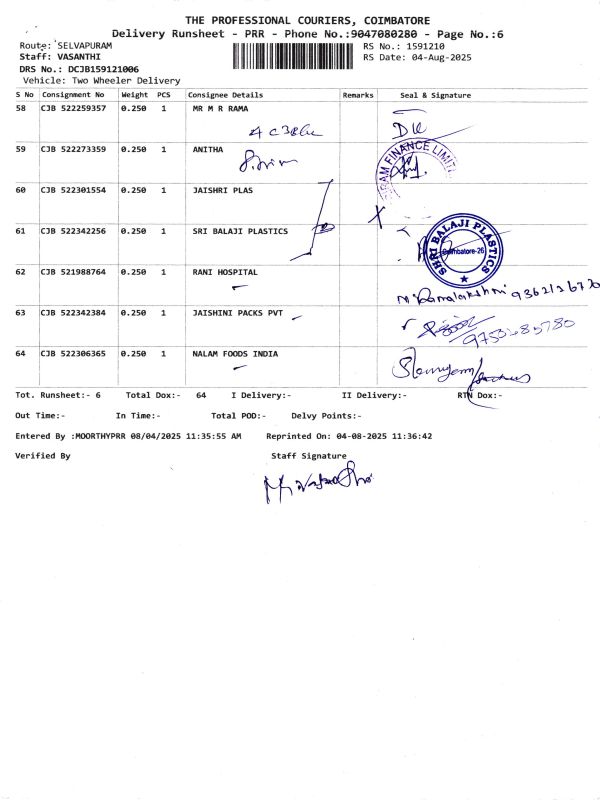 THE PROFESSIONAL COURIERS, COIMBATORE
Delivery Runsheet - PRR - Phone No.:9047080280 - Page No.:6
Route: SELVAPURAM RS No.: 1591210
Staff: VASANTHI RS Date: 04-Aug-2025
DRS No.: DCJB159121006
Vehicle: Two Wheeler Delivery
S No Consignment No Weight PCS Consignee Details Remarks Seal & Signature
58 CJB 522259357 0.250 1 MR M R RAMA
59 CJB 522273359 0.250 1 ANITHA
FINANCE LIMIT
60 CJB 522301554 0.250 1 JAISHRI PLAS
61 CJB 522342256 0.250 1 SRI BALAJI PLASTICS
SHRI BALAJI PLASTICS
Coimbatore-26
62 CJB 521988764 0.250 1 RANI HOSPITAL
63 CJB 522342384 0.250 1 JAISHINI PACKS PVT
64 CJB 522306365 0.250 1 NALAM FOODS INDIA
Tot. Runsheet:- 6 Total Dox:- 64 I Delivery:- II Delivery:- RTN Dox:-
Out Time:- In Time:- Total POD:- Delvy Points:-
Entered By :MOORTHYPRR 08/04/2025 11:35:55 AM Reprinted On: 04-08-2025 11:36:42
Verified By Staff Signature